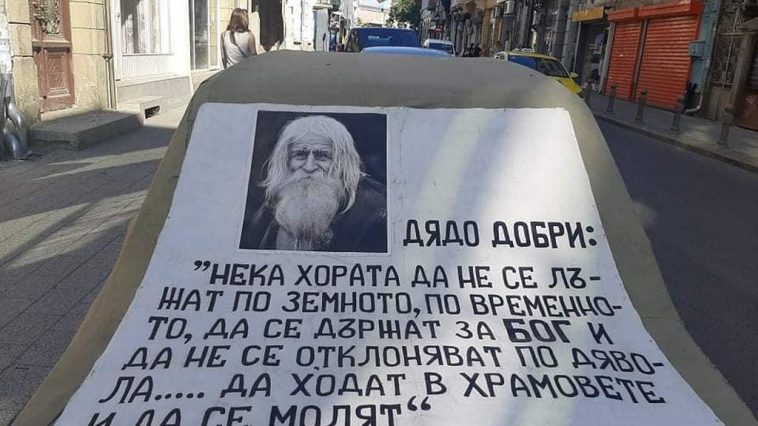 ДЯДО ДОБРИ:
"НЕКА ХОРАТА ДА НЕ СЕ ЛЪ-
ЖАТ ПО ЗЕМНОТО, ПО ВРЕМЕННО-
ТО, ДА СЕ ДЪРЖАТ ЗА БОГ И
ДА НЕ СЕ ОТКЛОНЯВАТ ПО ДЯВО-
ЛА..... ДА ХОДАТ В ХРАМОВЕТЕ
И ДА СЕ МОЛЯТ"